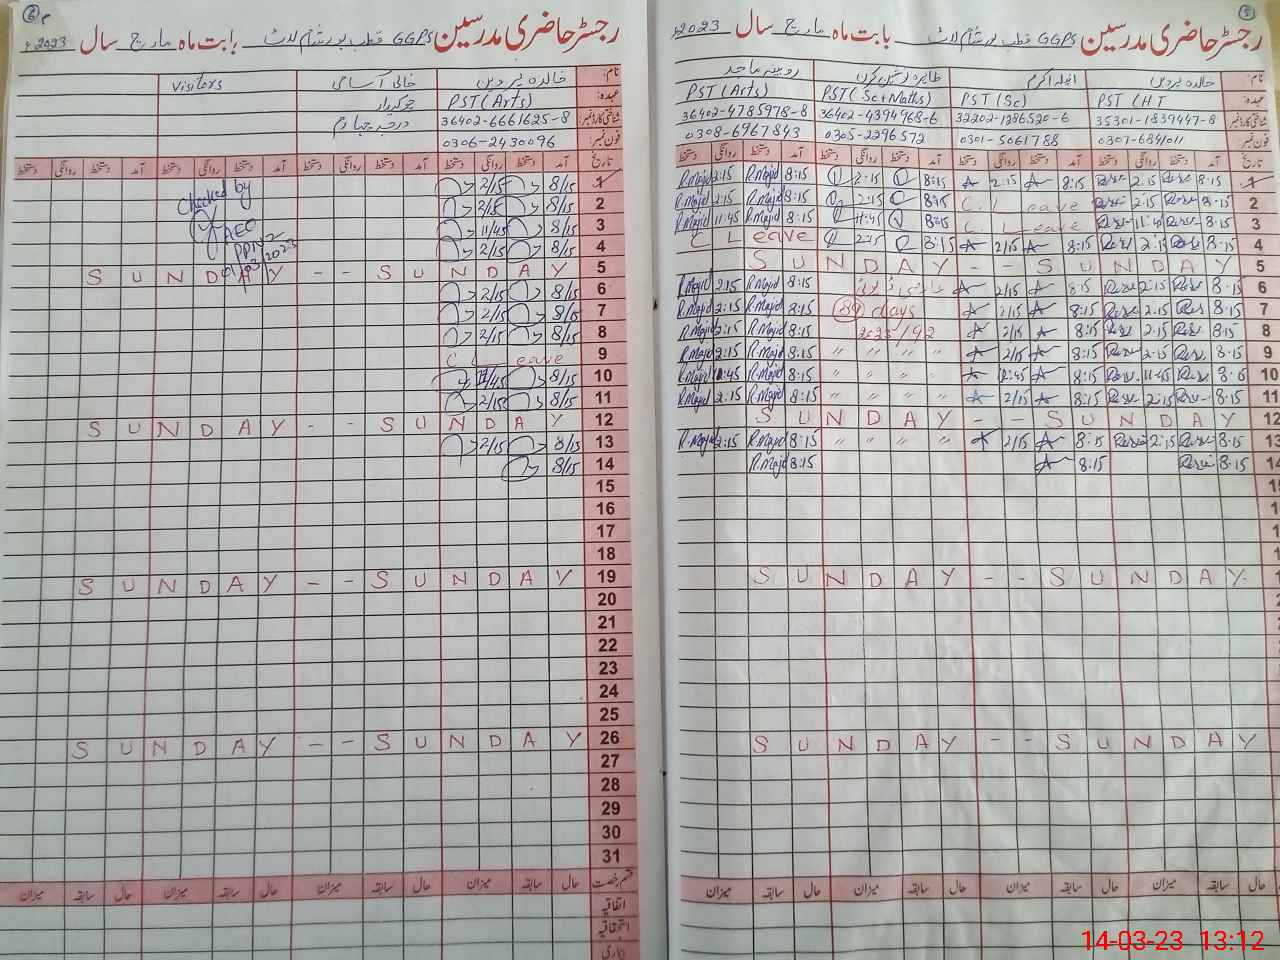 رجسٹر حاضری مدرسین GGPS قطب پور شام لاٹ بابت ماہ مارچ سال 2023ء
نام: خالدہ پروین خالی آسامی Visitors
عہدہ: PST (Arts) چوکیدار
شناختی کارڈ نمبر: 36402-6661625-8 درجہ چہارم
فون نمبر: 0306-2430096
تاریخ آمد دستخط روانگی دستخط آمد دستخط روانگی دستخط آمد دستخط روانگی دستخط آمد دستخط روانگی دستخط
1 8/15 2/15 Checked by
2 8/15 2/15
3 8/15 11/45 AEO
4 8/15 2/15
5 SUNDAY -- SUNDAY
6 8/15 2/15
7 8/15 2/15
8 8/15 2/15
9 C L eave
10 8/15 11/45
11 8/15 2/15
12 SUNDAY -- SUNDAY
13 8/15 2/15
14 8/15
15
16
17
18
19 SUNDAY -- SUNDAY
20
21
22
23
24
25
26 SUNDAY -- SUNDAY
27
28
29
30
31
قسم رخصت حال سابقہ میزان حال سابقہ میزان حال سابقہ میزان حال سابقہ میزان
اتفاقیہ
استحقاقیہ
رجسٹر حاضری مدرسین GGPS قطب پور شام لاٹ بابت ماہ مارچ سال 2023ء
نام: خالدہ پروین انیلہ اکرم طاہرہ نوشین کرن روبینہ ماجد
عہدہ: PST (HT PST (Sc) PST (Sc+Maths) PST (Arts)
شناختی کارڈ نمبر: 35301-1839447-8 32202-1386520-6 36402-4394968-6 36402-4785978-8
فون نمبر: 0307-6841011 0301-5061788 0305-2296572 0308-6967843
تاریخ آمد دستخط روانگی دستخط آمد دستخط روانگی دستخط آمد دستخط روانگی دستخط آمد دستخط روانگی دستخط
1 8·15 2·15 8:15 2·15 8:15 2·15 8:15 R.Majid 2:15 R.Majid
2 8·15 2·15 C. Leave 8:15 2:15 8:15 R.Majid 2:15 R.Majid
3 8·15 11·45 C. Leave 8:45 11:45 8:15 R.Majid 11:45 R.Majid
4 8·15 2:15 8:15 2/15 8:15 2:15 C Leave
5 SUNDAY -- SUNDAY
6 8·15 2:15 8:15 2/15 8:15 R.Majid 2:15 R.Majid
7 8·15 2·15 8:15 2/15 89 days 8:15 R.Majid 2:15 R.Majid
8 8·15 2·15 8:15 2/15 8:15 R.Majid 2:15 R.Majid
9 8·15 2:15 8:15 2/15 " " " " 8:15 R.Majid 2:15 R.Majid
10 11:45 8:15 " " " " 8:15 R.Majid 11:45 R.Majid
11 8·15 2:15 8:15 2/15 " " " " 8:15 R.Majid 2:15 R.Majid
12 SUNDAY -- SUNDAY
13 8·15 2:15 8:15 2/15 " " " " 8:15 R.Majid 2:15 R.Majid
14 8·15 8:15 8:15 R.Majid
SUNDAY -- SUNDAY
SUNDAY -- SUNDAY
حال سابقہ میزان حال سابقہ میزان حال سابقہ میزان حال سابقہ میزان
14-03-23 13:12